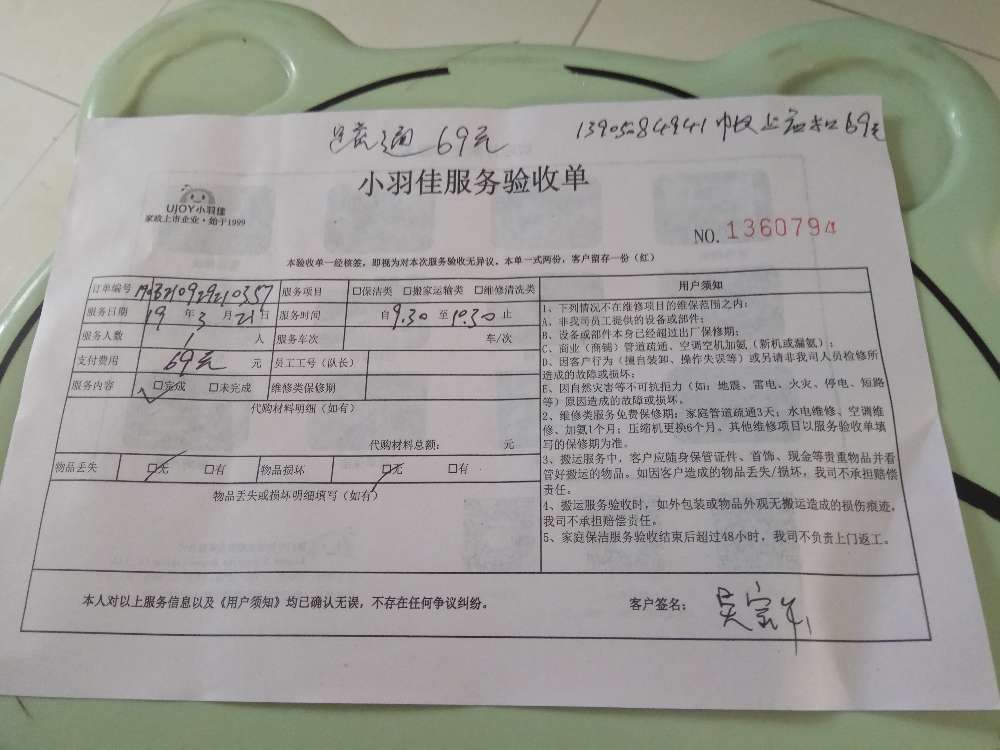 通 69元
13905084941 69元
小羽佳服务验收单
UJOY小羽佳
家政上市企业·始于1999
NO. 1360794
本验收单一经核签，即视为对本次服务验收无异议。本单一式两份，客户留存一份（红）
订单编号 服务项目 □保洁类 □搬家运输类 □维修清洗类
服务日期 19 年 3 月 21 日 服务时间 自 9.30 至 10.30 止
服务人数 1 人 服务车次 车/次
支付费用 69元 元 员工工号（队长）
服务内容 □完成 □未完成 维修类保修期
代购材料明细（如有）
代购材料总额： 元
物品丢失 □无 □有 物品损坏 □无 □有
物品丢失或损坏明细填写（如有）
用户须知
1、下列情况不在维修项目的维保范围之内：
A、非我司员工提供的设备或部件；
B、设备或部件本身已经超过出厂保修期；
C、商业（商铺）管道疏通、空调空机加氨（新机或漏氨）；
D、因客户行为（擅自装卸、操作失误等）或另请非我司人员检修所
造成的故障或损坏；
E、因自然灾害等不可抗拒力（如：地震、雷电、火灾、停电、短路
等）原因造成的故障或损坏。
2、维修类服务免费保修期：家庭管道疏通3天；水电维修、空调维
修、加氨1个月；压缩机更换6个月。其他维修项目以服务验收单填
写的保修期为准。
3、搬运服务中，客户应随身保管证件、首饰、现金等贵重物品并看
管好搬运的物品。如因客户造成的物品丢失/损坏，我司不承担赔偿
责任。
4、搬运服务验收时，如外包装或物品外观无搬运造成的损伤痕迹，
我司不承担赔偿责任。
5、家庭保洁服务验收结束后超过48小时，我司不负责上门返工。
本人对以上服务信息以及《用户须知》均已确认无误，不存在任何争议纠纷。
客户签名：